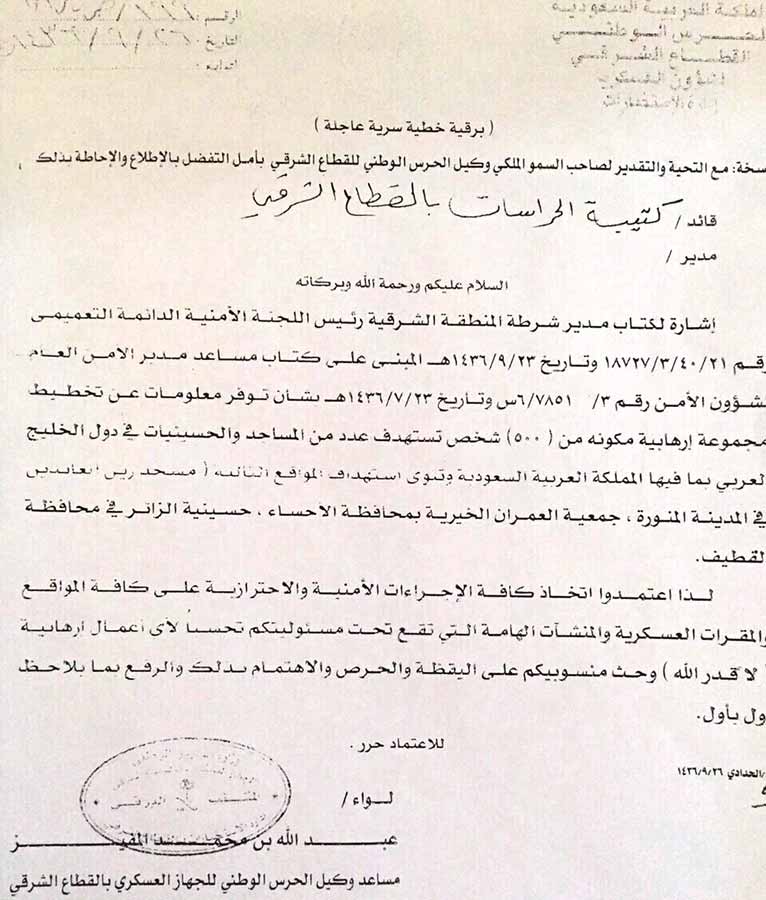 المملكة العربية السعودية
الحرس الوطني
القطاع الشرقي
شؤون العسكرية
إدارة الاستخبارات
الرقم:
التاريخ:
( برقية خطية سرية عاجلة )
نسخة: مع التحية والتقدير لصاحب السمو الملكي وكيل الحرس الوطني للقطاع الشرقي بأمل التفضل بالإطلاع والإحاطة بذلك ،
قائد / كتيبة الحراسات بالقطاع الشرقي
مدير /
السلام عليكم ورحمة الله وبركاته
إشارة لكتاب مدير شرطة المنطقة الشرقية رئيس اللجنة الأمنية الدائمة التعميمى
رقم ١٨٧٢٧/٣/٤٠/٢١ وتاريخ ١٤٣٦/٩/٢٣هـ المبنى على كتاب مساعد مدير الامن العام
لشؤون الأمن رقم ٣/ ٦/٧٨٥١س وتاريخ ١٤٣٦/٧/٢٣هـ بشأن توفر معلومات عن تخطيط
مجموعة إرهابية مكونه من ( ٥٠٠ ) شخص تستهدف عدد من المساجد والحسينيات في دول الخليج
العربي بما فيها المملكة العربية السعودية وتنوى استهداف المواقع التاليه ( مسجد زين العابدين
في المدينة المنورة ، جمعية العمران الخيرية بمحافظة الأحساء ، حسينية الزائر في محافظة
القطيف.
لـذا اعتمـدوا اتخـاذ كافـة الإجـراءات الأمنيـة والاحترازيـة علـى كافـة المواقـع
والمقرات العسكرية والمنشآت الهامة التي تقع تحت مسئوليتكم تحسباً لاى أعمال ارهابية
( لا قدر الله ) وحث منسوبيكم على اليقظة والحرص والاهتمام بذلك والرفع بما يلاحظ
أول بأول.
للاعتماد حرر .
الحدادي ١٤٣٦/٩/٢٦
لـواء /
عبـد الله بن محمـد المفيـز
مساعد وكيل الحرس الوطني للجهاز العسكري بالقطاع الشرقي